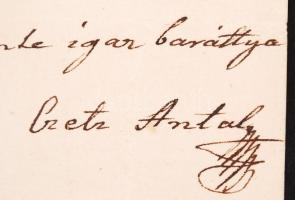 igaz baráttya
Czetz Antal